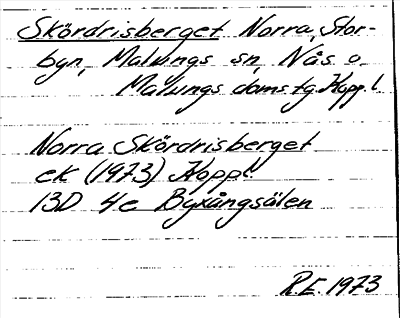 Skördrisberget Norra, Stor-
byn, Malungs sn, Nås o.
Malungs doms.tg. Kopp. l.
Norra Skördrisberget
ek (1973) Kopp l
13D 4e Byxångsälen
R.E. 1973